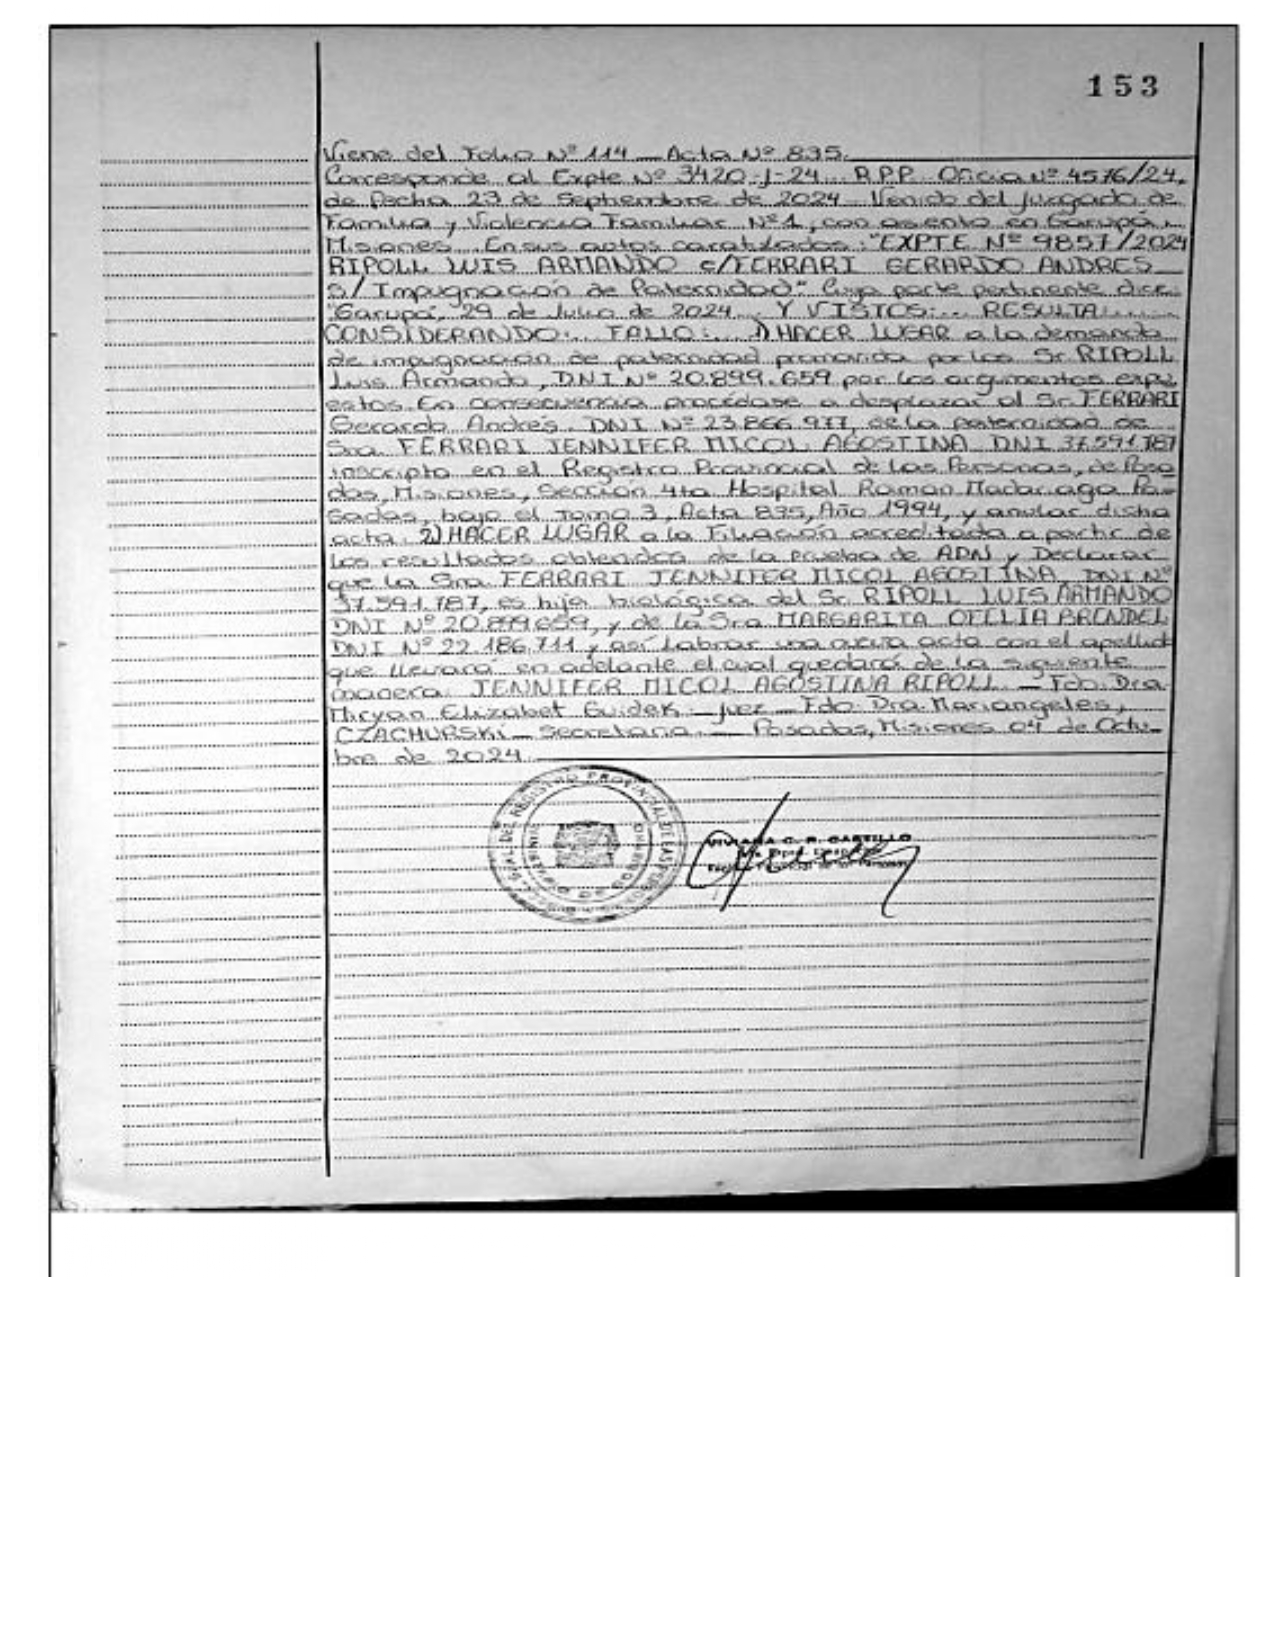 153
Viene del Folio Nº 114 _ Acta Nº 835.
Corresponde al Expte Nº 3420-J-24... R.P.P. Oficio Nº 4576/24,
de fecha 23 de Septiembre de 2024_ Venido del Juzgado de
Familia y Violencia Familiar Nº 1, con asiento en Garupá
Misiones. En sus autos caratulados: "EXPTE Nº 9857/2024
RIPOLL LUIS ARMANDO c/FERRARI GERARDO ANDRES
S/ Impugnación de Paternidad" Cuya parte pertinente dice:
"Garupá, 29 de Julio de 2024... Y VISTOS:... RESULTA:...
CONSIDERANDO:... FALLO:... 1) HACER LUGAR a la demanda
de impugnación de paternidad promovida por los Sr. RIPOLL
Luis Armando, DNI Nº 20.899.659 por los argumentos expu
estos. En consecuencia procédase a desplazar al Sr. FERRARI
Gerardo Andres. DNI Nº 23.866.977, de la paternidad de
Sra. FERRARI JENNIFER MICOL AGOSTINA DNI 37.591.787
inscripta en el Registro Provincial de las Personas, de Posa
das, Misiones, Sección 4ta Hospital Ramon Madariaga Po-
sadas, bajo el Tomo 3, Acta 835, Año 1994, y anular dicha
acta. 2) HACER LUGAR a la Filiación acreditada a partir de
los resultados obtenidos de la prueba de ADN y Declarar
que la Sra. FERRARI JENNIFER MICOL AGOSTINA, DNI Nº
37.591.787, es hija biológica del Sr. RIPOLL LUIS ARMANDO
DNI Nº 20.899.659, y de la Sra MARGARITA OFELIA BRENDEL
DNI Nº 22.186.711 y así labrar una nueva acta con el apellido
que llevará en adelante el cual quedará de la siguiente
manera: JENNIFER MICOL AGOSTINA RIPOLL. _ Fdo. Dra
Miryan Elizabet Guidek. Juez _ Fdo. Dra. Mariangeles,
CZACHURSKI _ Secretaria. _ Posadas, Misiones 04 de Octu-
bre de 2024.
VIVIANA C. R. CASTILLO